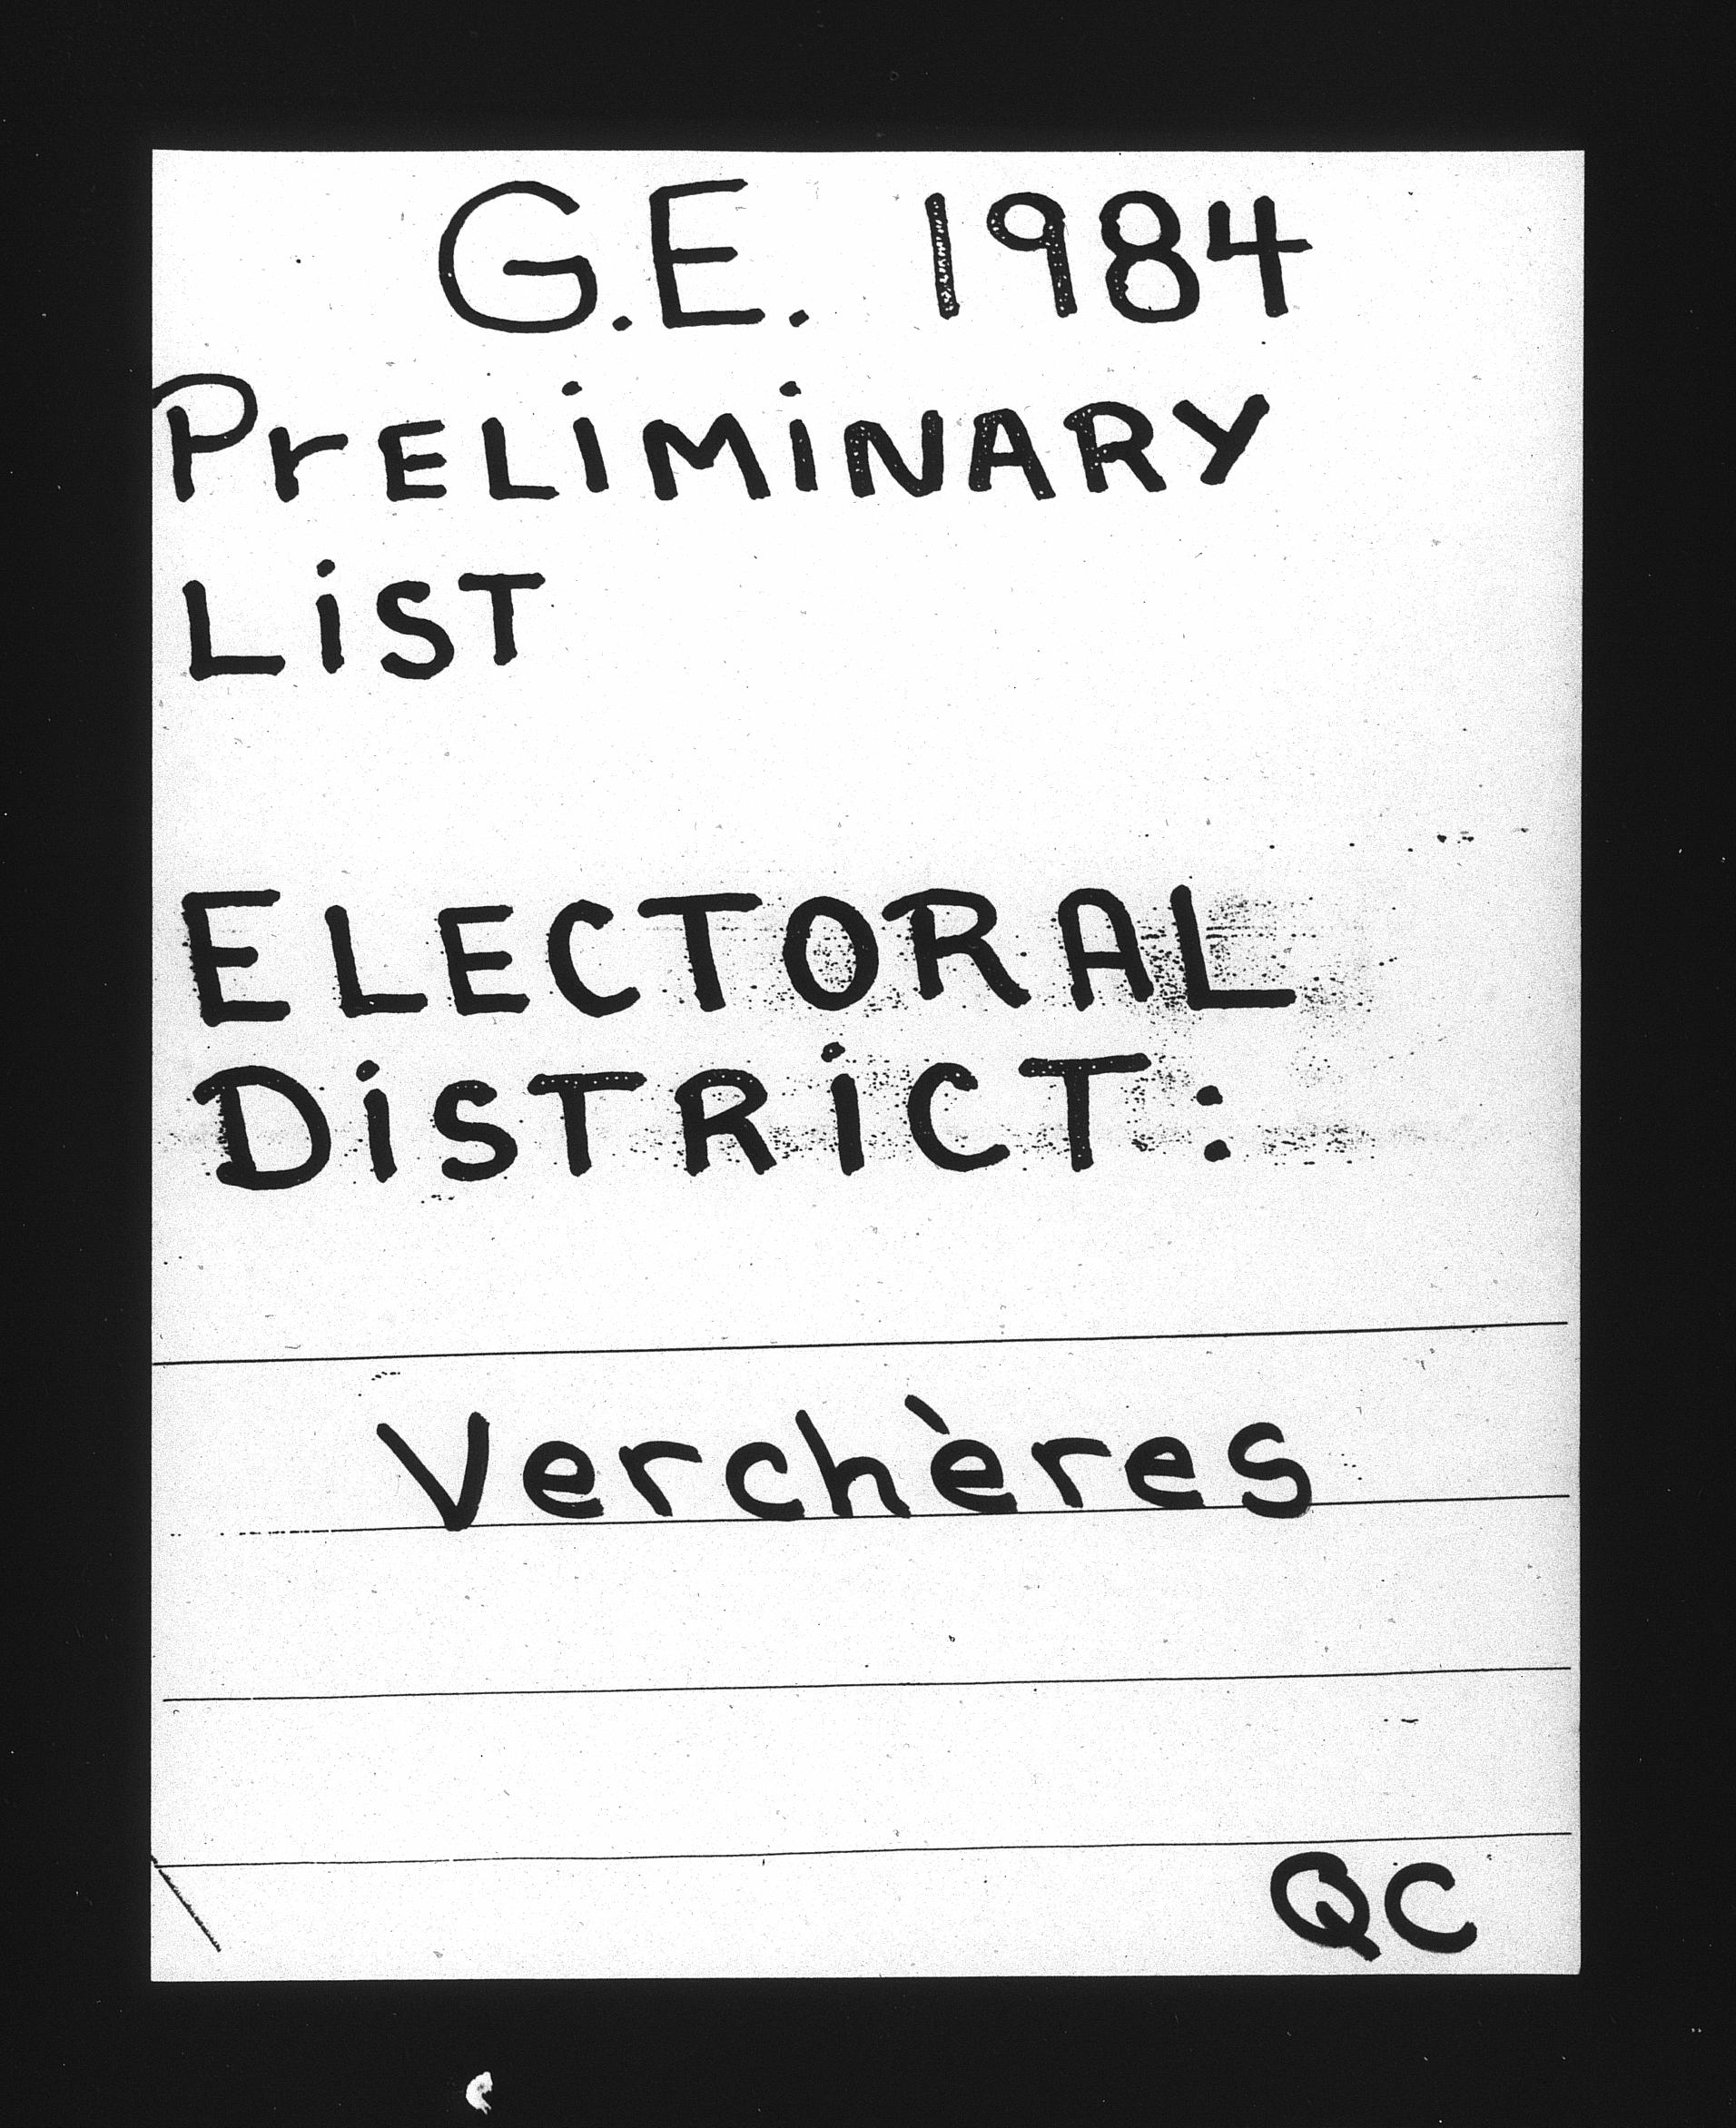 G.E. 1984
PRELIMINARY
LIST
ELECTORAL
DISTRICT:
Verchères
QC